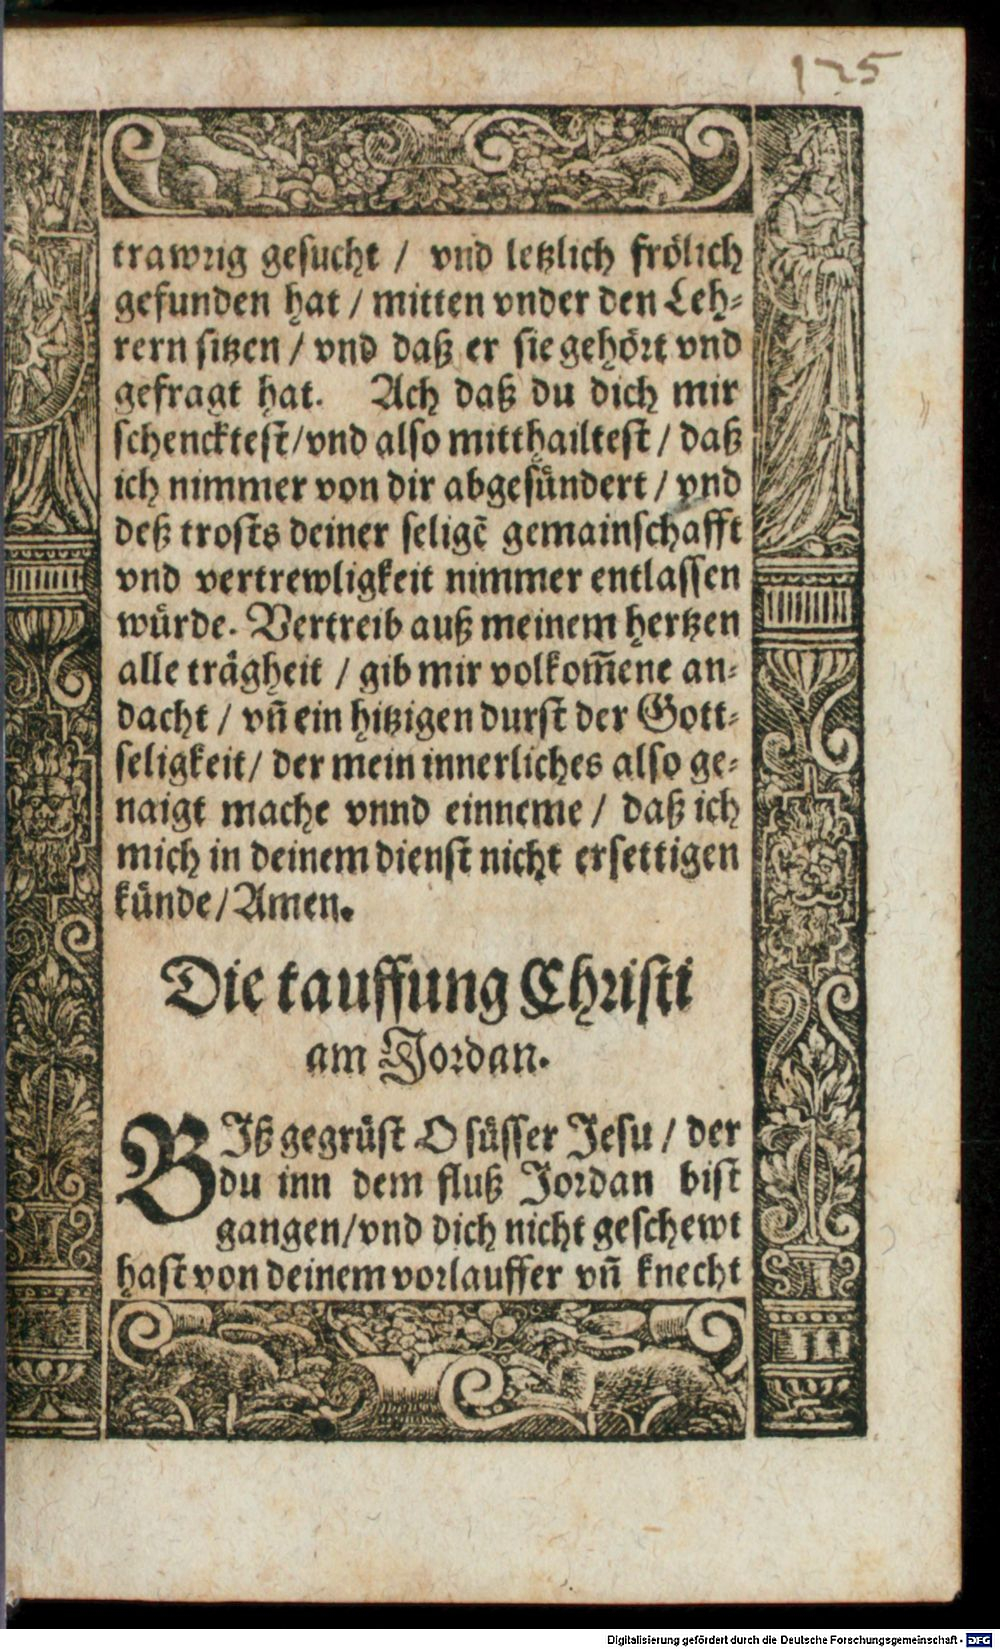 125
trawrig gesucht / vnd letzlich frölich
gefunden hat / mitten vnder den Leh-
rern sitzen / vnd daß er sie gehört vnd
gefragt hat. Ach daß du dich mir
schencktest/vnd also mitthailtest / daß
ich nimmer von dir abgesündert / vnd
deß trosts deiner seligẽ gemainschafft
vnd vertrewligkeit nimmer entlassen
würde. Vertreib auß meinem hertzen
alle trägheit / gib mir volkom̃ene an-
dacht / vñ ein hitzigen durst der Gott-
seligkeit/ der mein innerliches also ge-
naigt mache vnnd einneme / daß ich
mich in deinem dienst nicht ersettigen
künde/Amen.
Die tauffung Christi
am Jordan.
BIß gegrüst O süsser Jesu / der
du inn dem fluß Jordan bist
gangen/vnd dich nicht geschewt
hast von deinem vorlauffer vñ knecht
Digitalisierung gefördert durch die Deutsche Forschungsgemeinschaft - DFG